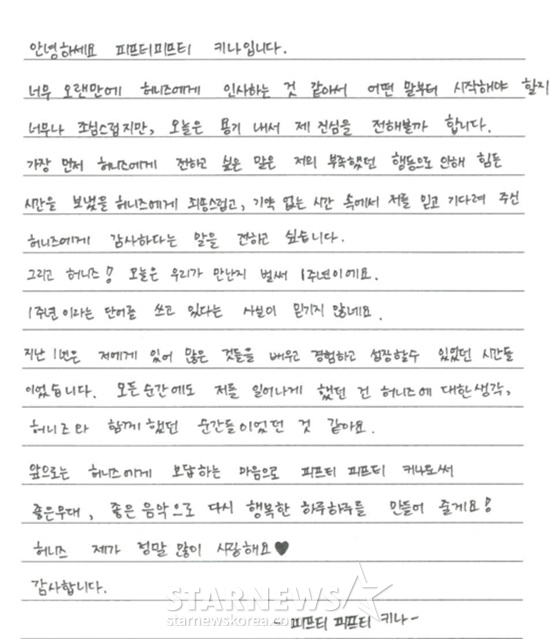 안녕하세요 피프티피프티 키나입니다.
너무 오랜만에 허니즈에게 인사하는 것 같아서 어떤 말부터 시작해야 할지
너무나 조심스럽지만, 오늘은 용기 내서 제 진심을 전해볼까 합니다.
가장 먼저 허니즈에게 전하고 싶은 말은 저의 부족했던 행동으로 인해 힘든
시간을 보냈을 허니즈에게 죄송스럽고, 기약 없는 시간 속에서 저를 믿고 기다려 주신
허니즈에게 감사하다는 말을 전하고 싶습니다.
그리고 허니즈! 오늘은 우리가 만난지 벌써 1주년이에요.
1주년이라는 단어를 쓰고 있다는 사실이 믿기지 않네요.
지난 1년은 저에게 있어 많은 것들을 배우고 경험하고 성장할수 있었던 시간들
이었습니다. 모든순간에도 저를 일어나게 했던 건 허니즈에 대한생각,
허니즈와 함께했던 순간들이었던 것 같아요.
앞으로는 허니즈에게 보답하는 마음으로 피프티 피프티 키나로써
좋은무대, 좋은 음악으로 다시 행복한 하루하루를 만들어 줄게요!
허니즈 제가 정말 많이 사랑해요♥
감사합니다.
STARNEWS
starnewskorea.com
- 피프티 피프티 키나 -